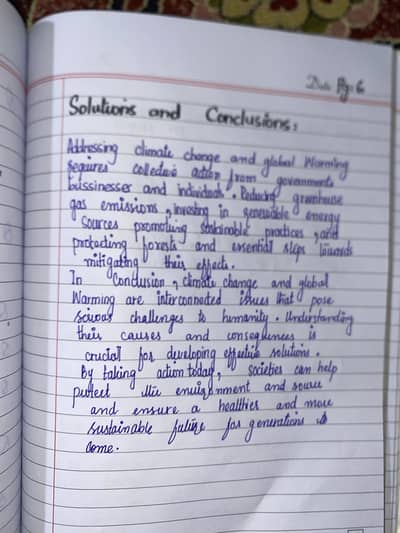 Date Pg: 6
Solutions and Conclusions:
Addressing climate change and global Warming
requires collective action from governments
bussinesser and individuals. Reducing greenhouse
gas emissions, investing in renewable energy
sources promoting sustainable practices, and
protecting forests and essential steps towards
mitigating their effects.
In Conclusion, climate change and global
Warming are interconnected issues that pose
serious challenges to humanity. Understanding
their causes and consequences is
crucial for developing effective solutions.
By taking action today, societies can help
protect the environment and source
and ensure a healthier and more
sustainable future for generations to
come.